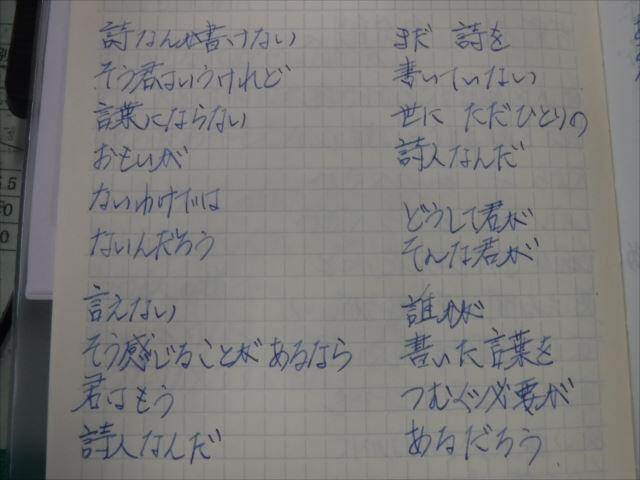 詩なんか書けない
そう君はいうけれど
言葉にならない
おもいが
ないわけでは
ないんだろう
言えない
そう感じることがあるなら
君はもう
詩人なんだ
まだ 詩を
書いていない
世に ただひとりの
詩人なんだ
どうして君が
そんな君が
誰かが
書いた言葉を
つむぐ必要が
あるだろう
5
0
0